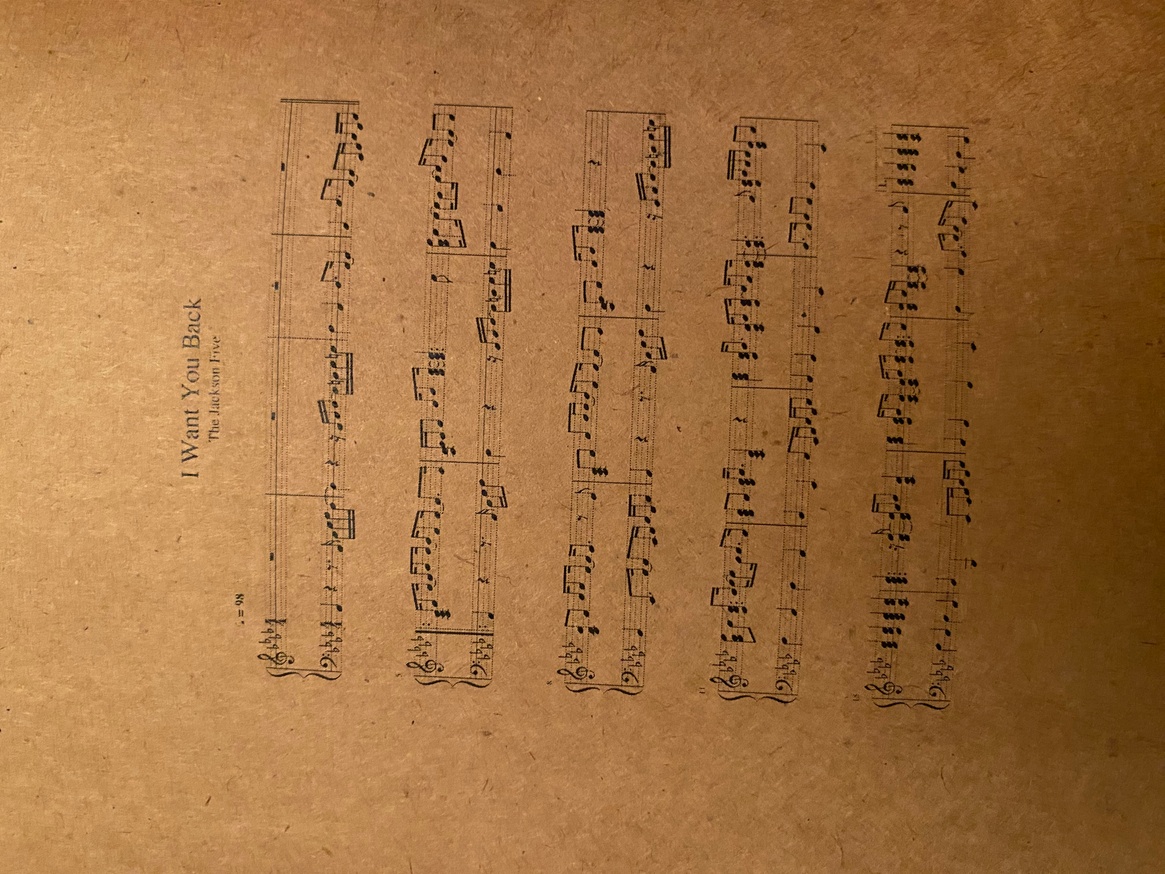 I Want You Back
The Jackson Five
♩ = 98
5
8
11
15
1.